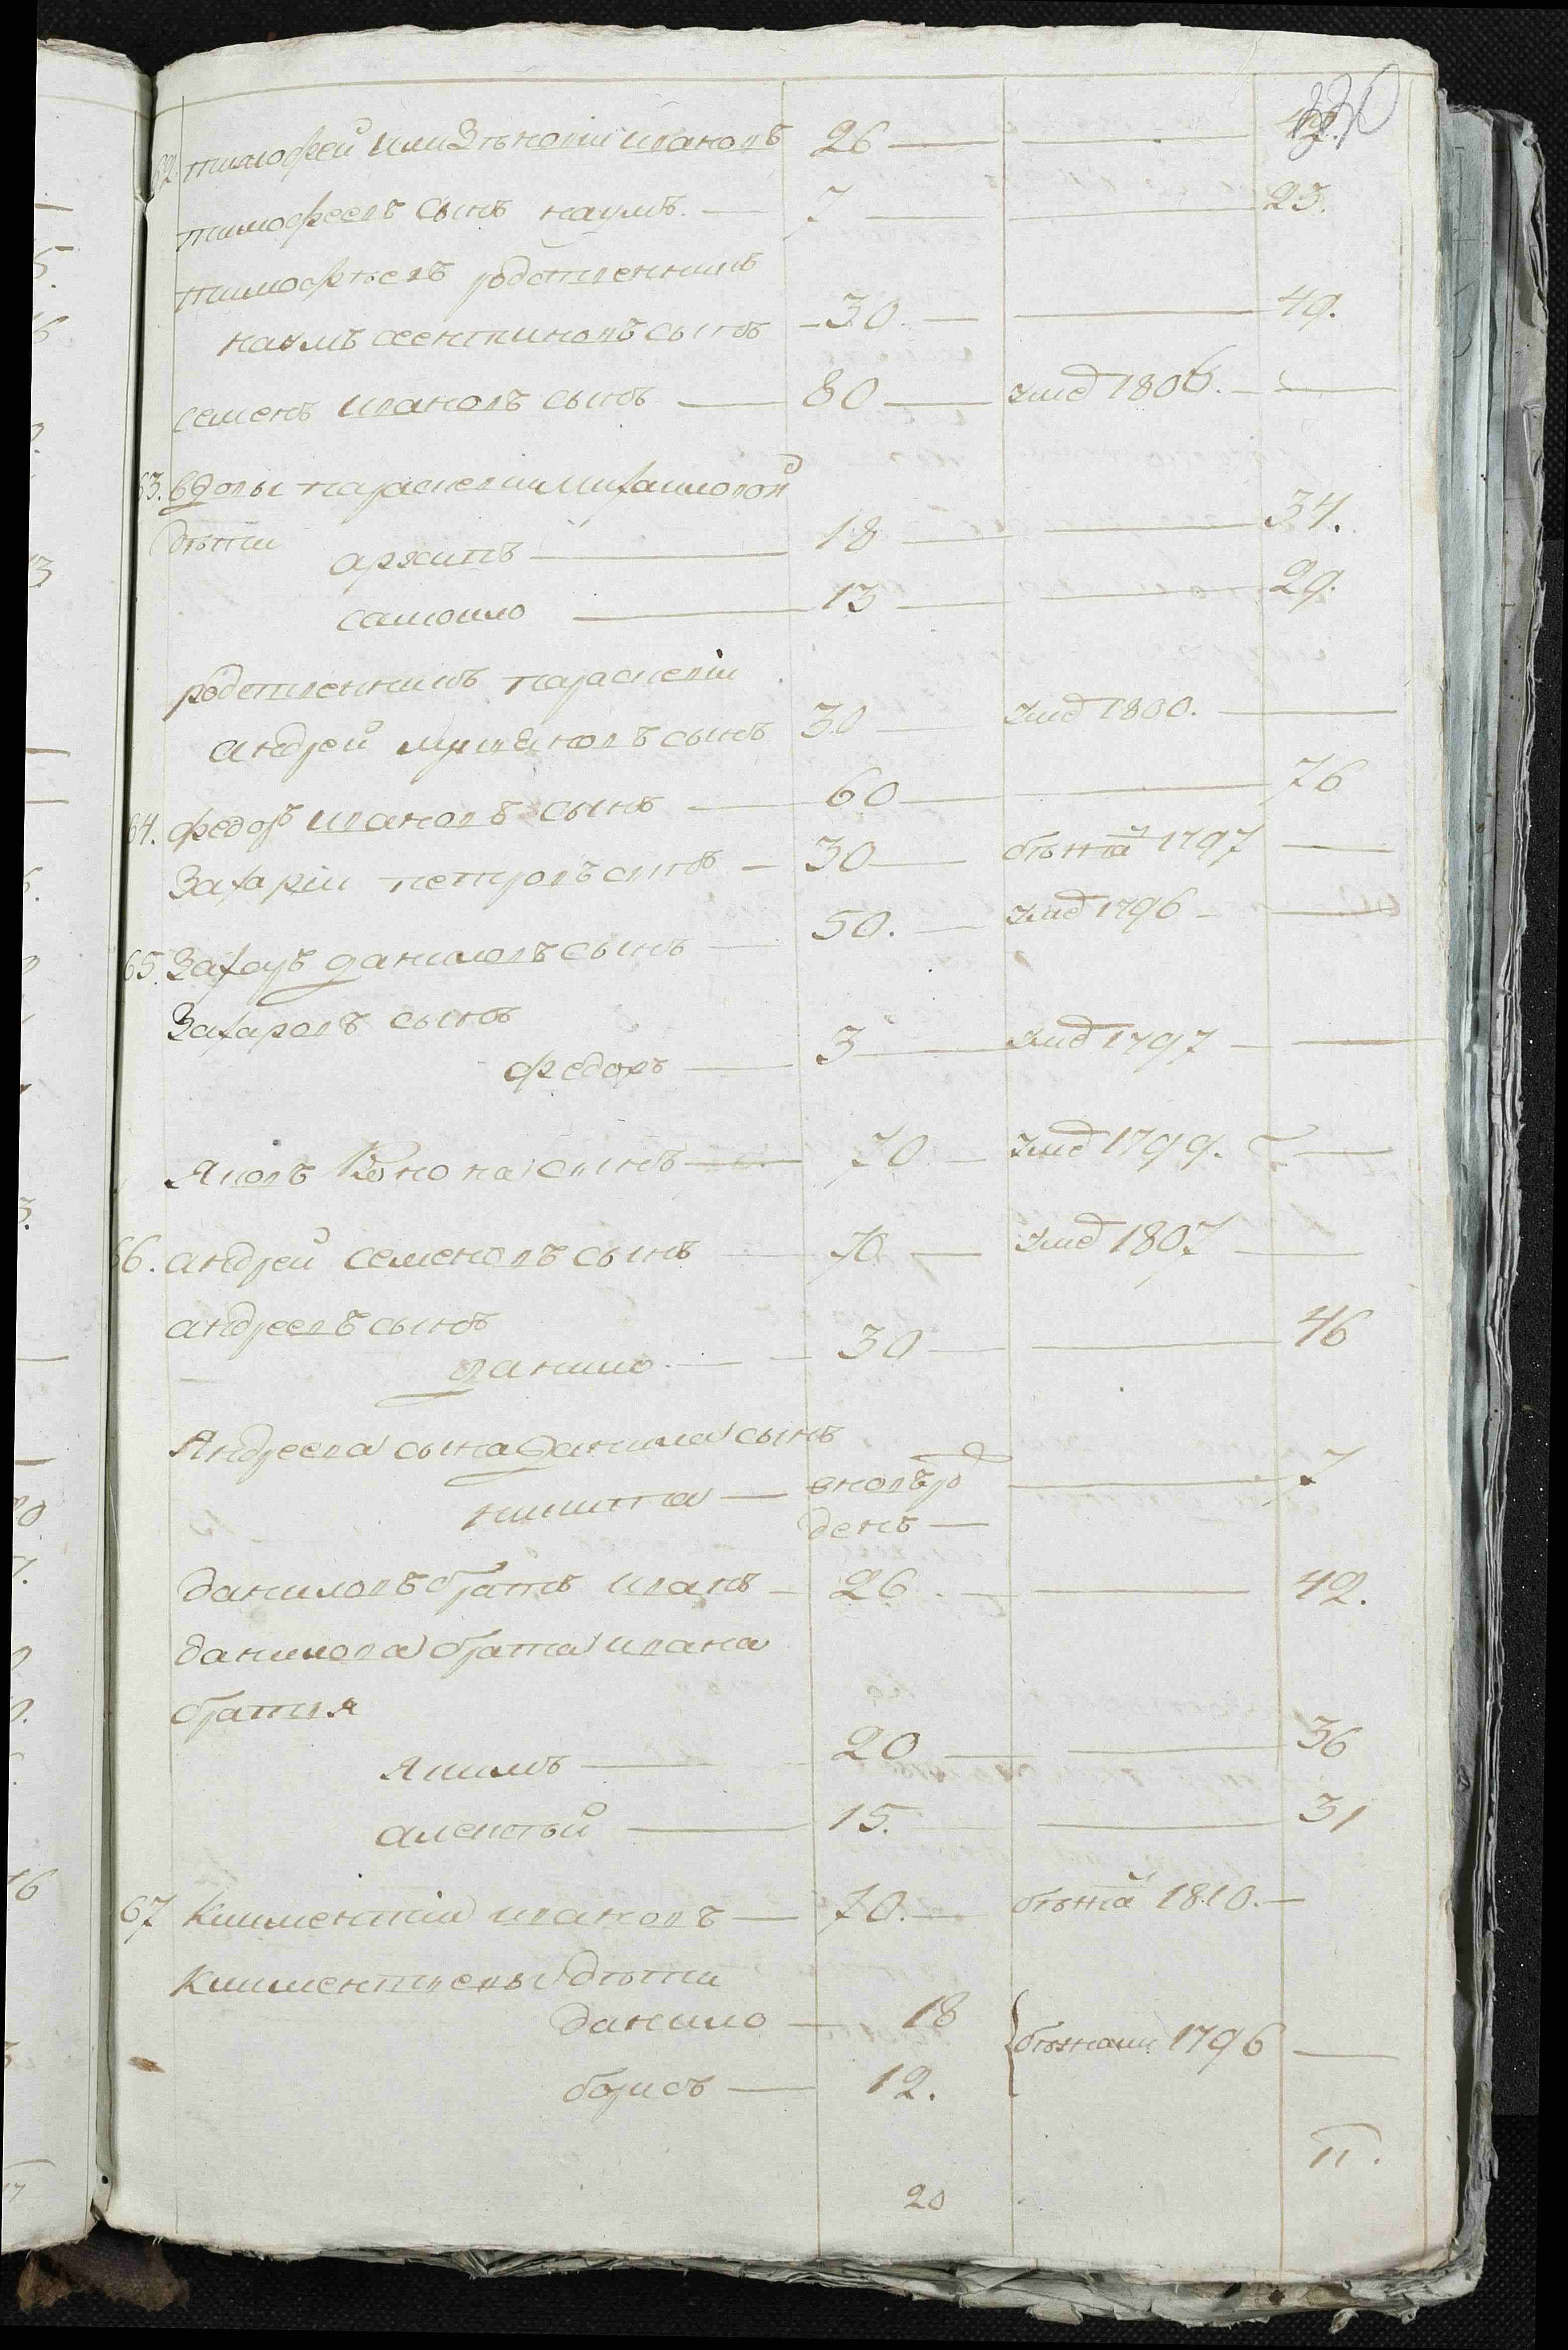 330
62. тимофей или Зѣновiи ивановъ 26 — — 42.
тимофеевъ сынъ наумъ. — 7 — — 23.
тимофѣевъ родственникъ
наумъ сынъ — 30. — — 49.
семенъ ивановъ сынъ — 80 — умер 1806. — —
63. вдовы параскевiи михайловой
дѣти архипъ — 18 — — 34.
самоило — 13 — — 29.
родственникъ параскевiи
андрей сынъ 30 — умер 1800. —
64. федоръ ивановъ сынъ — 60 — — 76
Захарiи петровъ снъ — 30 — бѣжа 1797 —
65. Захаръ даниловъ сынъ — 50. — умер 1796 — —
Захаровъ сынъ
федоръ — 3 — умер 1797 — —
Яковъ Конона сынъ — 70 — умер 1799. —
66. андрей семеновъ сынъ — 70. — умер 1807 —
андреевъ сынъ
данило. — — 30 — — 46
Андреева сына данила сынъ
никита — вновь ро — 7
денъ —
даниловъ братъ иванъ — 26. — — 42.
данилова брата ивана
братья
Якимъ — 20 — — 36
алексѣй — 15. — — 31
67 Климентiи ивановъ — 70. — бѣжа 1810. —
Климентьевы дѣти
данило — 18
бѣжали 1796 —
борисъ — 12.
11.
20